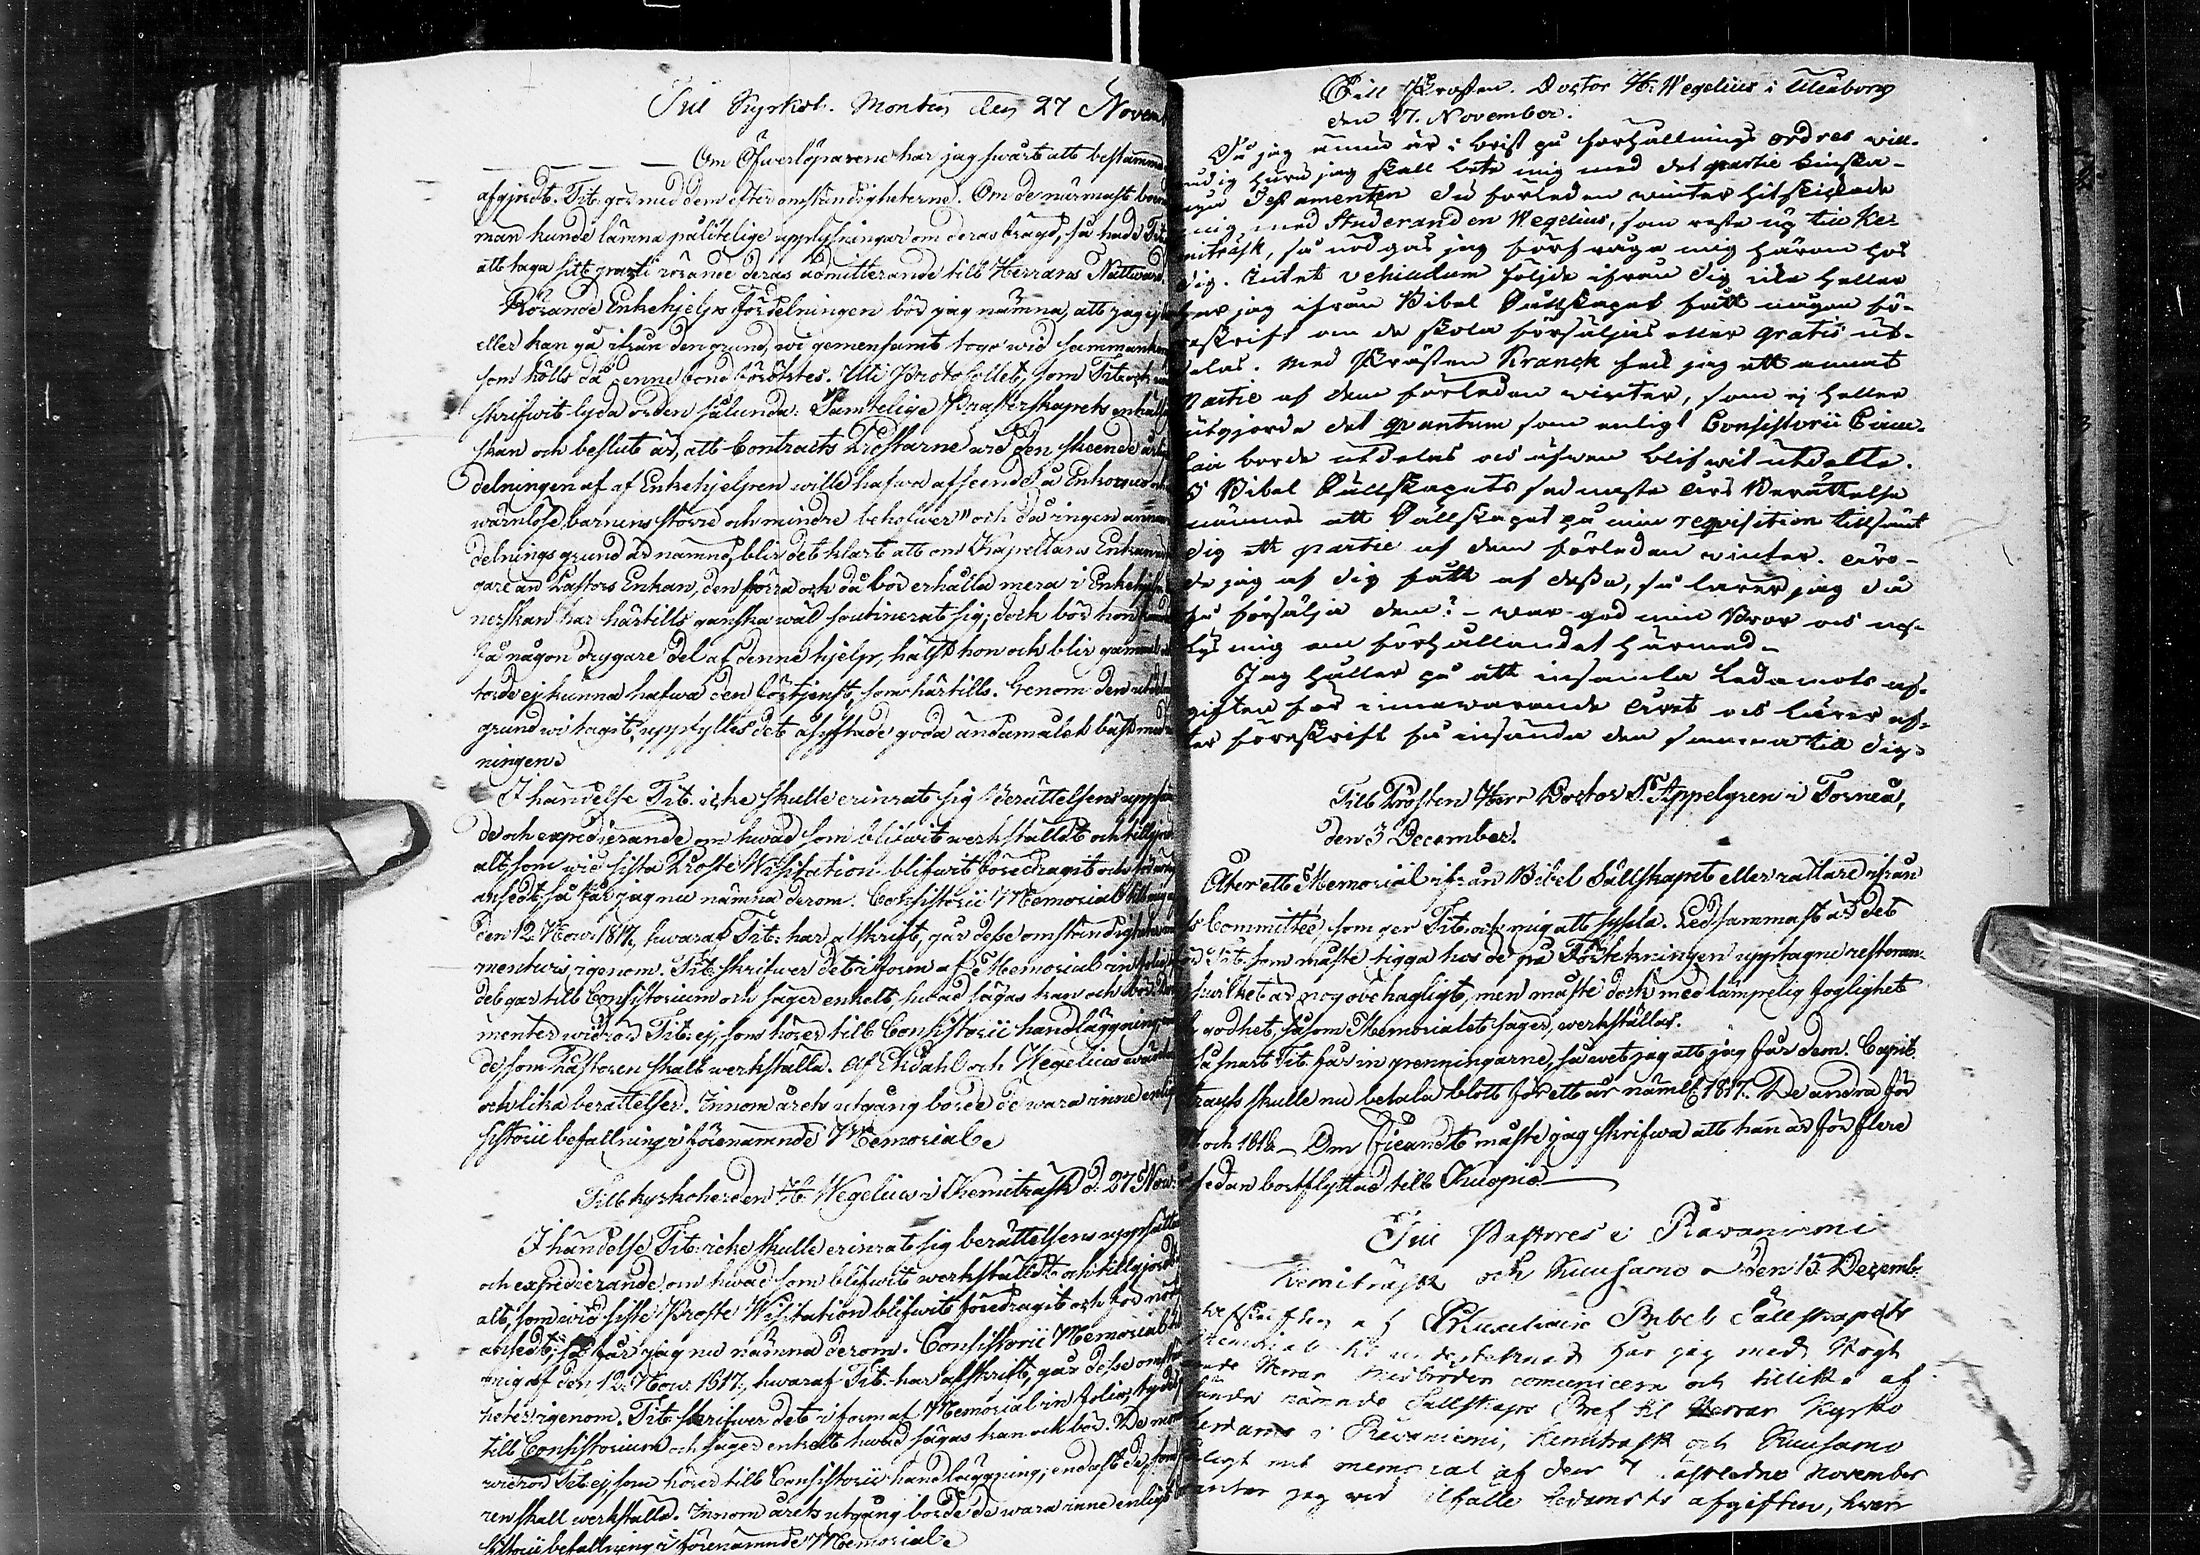 Till Kyrkoh. Montin den 27 Novem
Om Öfwerlöparene har jag swårt att bestämma
afgjordt. Tit. gör med dem efter omständigheterne. Om de närmast
man kunde lämna pålitelige upplysningar om deras bragd, så hade Tit
att taga sitt parti rörande deras admitterande till Herrans Nattward.
Rörande Enkehjelps fördelningen bör jag nämna, att jag ej
eller kan gå ifrån den grund, wi gemensamt togo wid samman
som hölls då denne fond föröktes. Uti Protokollet, som Tit. ock
skrifwit lyda orden sålunda: Samtelige Presterskapets
skan och beslut är, att Contracts Prostarne wid den skeende
delningen af af Enkehjelpen wille hafwa afseende å Enkornas
wärnlöse barnens större och mindre behofwer" och då ingen annan
delnings grund är nämnd, blir det klart att om Kapellans Enkan
gare än Pastors Enkan, den förra ock då bör erhålla mera i Enkehjelp
nerskan har härtills ganska wäl soutinerat sig; dock bör hon
få någon drygare del af denne hjelp, hälst hon ock blir gammal
torde ej kunna hafwa den förtjenst, som härtills. Genom den
grund wi tagit, uppfylles det åsyftade goda ändamålet bäst
ningen.
I händelse Tit. icke skulle erinrat sig Berättelsens uppsä
de och expedierande om hwad som blifwit werkstäldt och tillgjord
alt, som wid sista Proste Wisitation blifwit föredragit och
ansedt; så får jag nu nämna derom. Consistorii Memorial till mig
den 12 Now. 1817, hwaraf Tit. har afskrift, går desse omständigheter
mentwis igenom. Tit. skrifwer det i form af Memorial in folio
del går till Consistorium och säger enkelt, hwad sägas kan och bör
menter widrör Tit. ej, som hörer till Consistorii handläggning
de, som Pastoren skall werkställa. Af Ekdahl och Wegelius wäntar
och lika berättelser. Innom årets utgång borde de wara inne enligt
sistorii befallning i förenämnde Memorial.
Till kyrkoherden H. Wegelius i Kemiträsk d. 27 Now.
I händelse Tit. icke skulle erinrat sig berättelsens uppsätta
och expedierande om hwad som blifwit werkstäldt och tillgjordt
alt, som wid siste Proste Wisitation blifwit föredragit och för nöd
ansedt; så får jag nu nämna derom. Consistorii Memorial
mig af den 12 Now. 1817, hwaraf Tit. har afskrift, går desse omstän
heter igenom. Tit. skrifwer det i form af Memorial in folio,
till Consistorium och säger enkelt hwad sägas kan och bör. De mom
widrör Tit. ej, som hörer till Consistorii handläggning; endast de, som
ren skall werkställa. Innom årets utgång borde de wara inne enligt
sistorii befallning i förenämnde Memorial.
Till Prosten. Doctor H. Wegelius i Uleåborg
den 27. November.
Då jag ännu är i brist på förhållnings ordres will-
rådig huru jag skall bete mig med det partie Finska
nya Testamenten du förleden winter hitskickade
mig med Studeranden Wegelius, som reste up till Ke-
miträsk, så nödgas jag förfråga mig härom hos
dig. Intet vehiculum följde ifrån dig icke heller
har jag ifrån Bibel Sällskapet fått någon fö-
reskrift om de skola försäljas eller gratis ut-
delas. Med Prosten Kranck fick jag ett annat
Partie af dem förleden winter, som ej heller
utgjorde det quantum som enligt Consistorii Circu-
lair borde utdelas och äfwen blifwit utdelte.
I Bibel Sällskapets sednaste Års Berättelse
nämnes att Sällskapet på min requisition tillsändt
dig ett partie af dem förleden winter.
de jag af dig fått af dessa, så lärer jag då
få försälja dem? – war god min Bror och up-
lys mig om förhållandet härmed –
Jag håller på att insamla Ledamots af-
giften för innewarande året och lärer ef-
ter föreskrift få insända den samma till dig.
Till Prosten Herr Doctor S. Appelgren i Torneå,
den 3 December.
Åter ett Memorial ifrån Bibel Sällskapet eller rättare ifrån
s Committée, som ger Tit. och mig att syssla. Ledsammast är det
för Tit. som måste tigga hos de på Förtekningen upptagne restan
hwilket är nog obehagligt, men måste dock med lämpelig foglighet
godhet, såsom Memorialet säger, werkställas.
Så snart Tit. får in penningarne, så wet jag att jag får dem. Capit.
skulle nu betala blott för ett år näml. 1817. De andra för
och 1818. – Om Fieandt måste jag skrifwa att han är för flere
sedan bortflyttad till Kuopio.
Till Pastores i Råwaniemi
Kemiträsk och Kuusamo den 15 Decemb.
afskriften af Auxiliair Bibel Sällskapets
Memorial till undertecknad har jag med Högt
ärade Herrar Medbröder communicera och tillika af
sände nämnde Sällskaps Bref til Herrar Kyrko
herdarne i Rawaniemi, Kemiträsk och Kuusamo
enligt mit memorial af den 7 sistledne November
wäntar jag wid tilfälle Ledamots afgiften, hwar